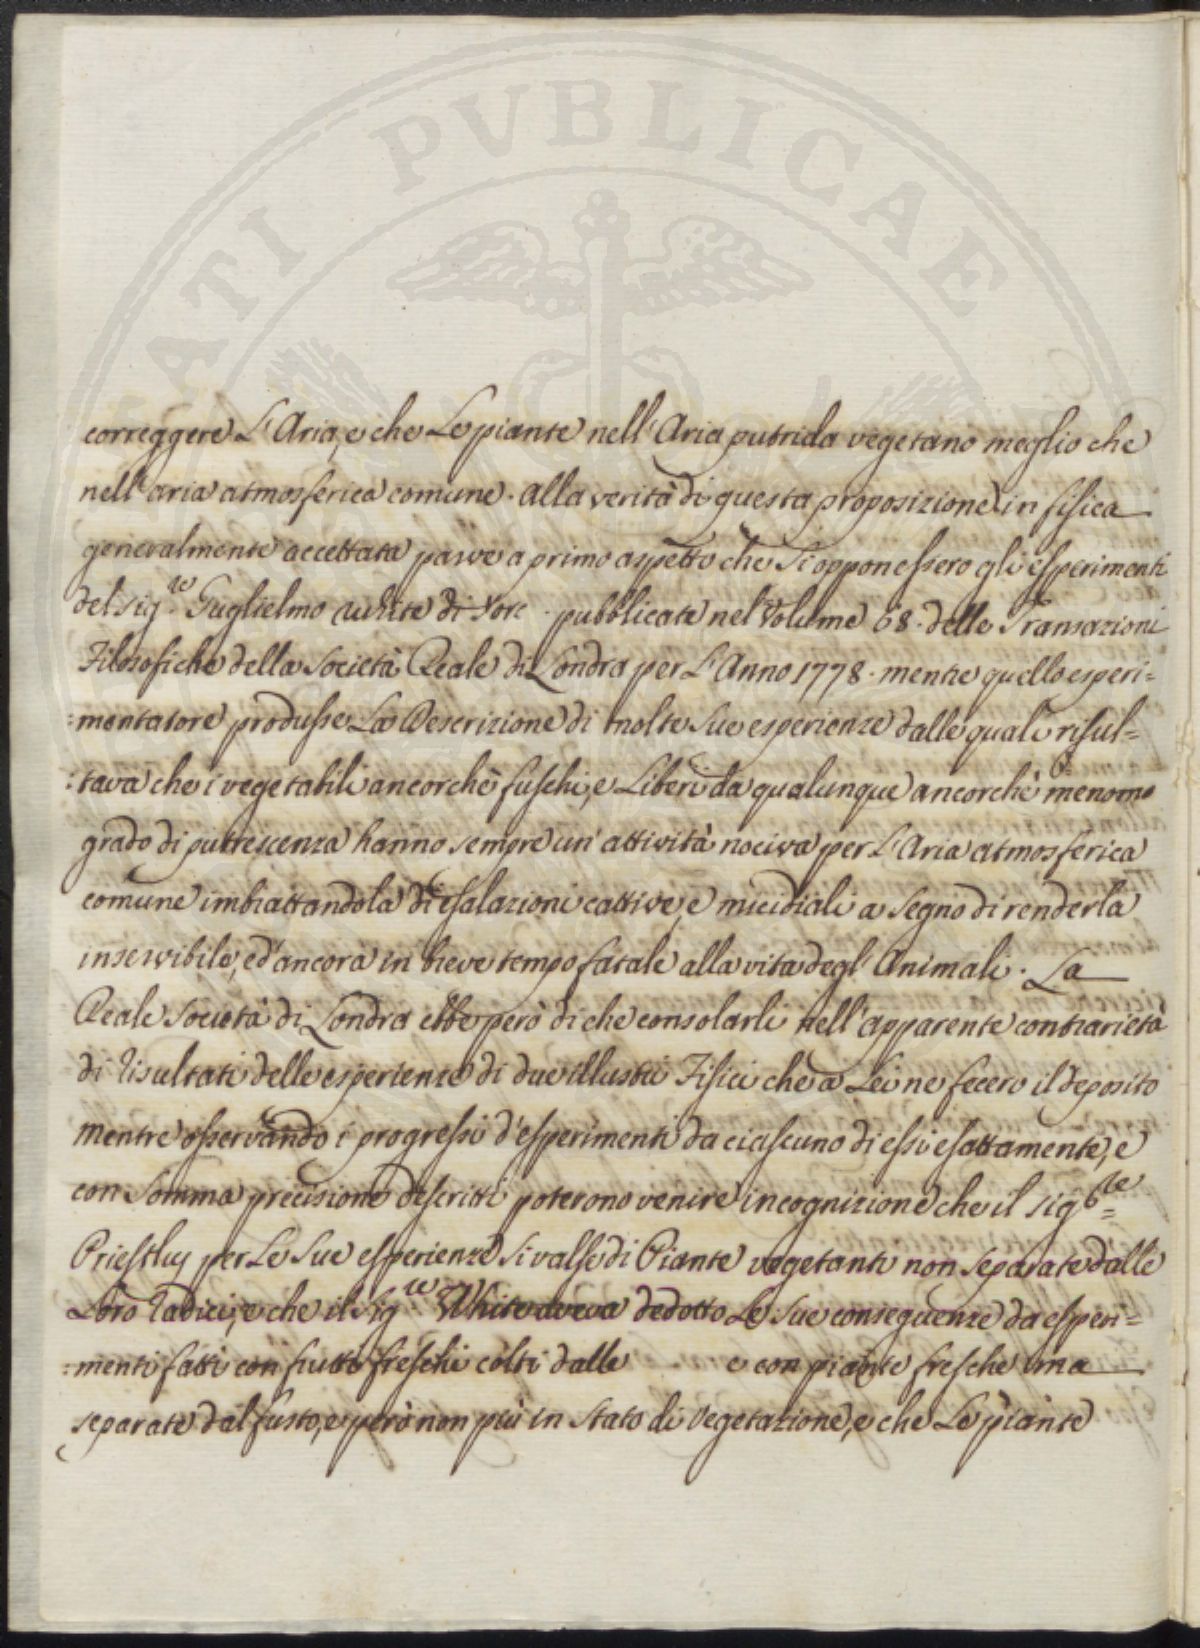 ATI PUBLICAE
correggere L'Aria, e che Le piante nell'Aria putrida vegetano meglio che
nell'aria atmosferica comune. alla verità di questa proposizione in fisica
generalmente accettata parve a primo aspetto che si opponessero gli esperimenti
del sig.re Guglielmo White di Yorc. pubblicate nel Volume 68. delle Transazioni
Filosofiche della Società Reale di Londra per L'Anno 1778. mentre quello esperi=
=mentatore produsse La Descrizione di molte sue esperienze dalle quali risul=
=tava che i vegetabili ancorchè freschi, e Liberi da qualunque ancorchè menomo
grado di putrescenza hanno sempre un'attività nociva per L'Aria atmosferica
comune imbrattandola di esalazioni cattive, e micidiali a segno di renderla
inservibile, ed'ancora in breve tempo fatale alla vita degl'Animali. La
Reale Società di Londra ebbe però di che consolarli nell'apparente contrarietà
di risultati delle esperienze di due illustri Fisici che a Lei ne fecero il deposito
mentre osservando i progressi d'esperimenti da ciascuno di essi esattamente, e
con somma precisione descritti poterono venire in cognizione che il sig.re
Priestluy per Le sue esperienze si valse di Piante vegetanti non separate dalle
Loro radici, e che il sig.re White aveva dedotto Le sue conseguenze da esperi=
=menti fatti con frutti freschi colti dalle e con piante fresche ma
separate dal fusto, e però non più in stato di vegetazione, e che Le piante